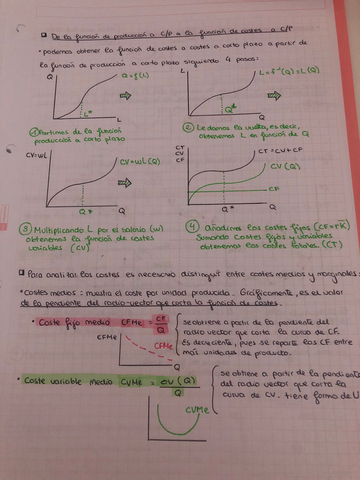 De la función de producción a C/P a la función de costes a C/P
• podemos obtener la función de costes a costes a corto plazo a partir de
la función de producción a corto plazo siguiendo 4 pasos:
Q
Q = f(L)
L*
L
L
L = f⁻¹(Q) = L(Q)
Q*
Q
① Partimos de la función
producción a corto plazo
② Le damos la vuelta, es decir,
obtenemos L en función de Q
CV=wL
CV=wL(Q)
Q*
Q
CT
CV
CF
CT=CV+CF
CV(Q)
CF
Q*
Q
③ Multiplicando L por el salario (w)
obtenemos la función de costes
variables (CV)
④ Añadimos los costes fijos (CF=rK̄)
Sumando costes fijos y variables
obtenemos los costes totales. (CT)
Para analizar los costes es necesario distinguir entre costes medios y marginales:
• Costes medios: muestra el coste por unidad producida. Gráficamente, es el valor
de la pendiente del radio-vector que corta la función de costes.
• Coste fijo medio CFMe = CF
Q
CFMe
CFMe
Q
se obtiene a partir de la pendiente del
radio vector que corta la curva de CF.
Es decreciente, pues se reparte los CF entre
más unidades de producto.
• Coste variable medio CVMe = CV(Q)
Q
CVMe
se obtiene a partir de la pendiente
del radio vector que corta la
curva de CV. tiene forma de U